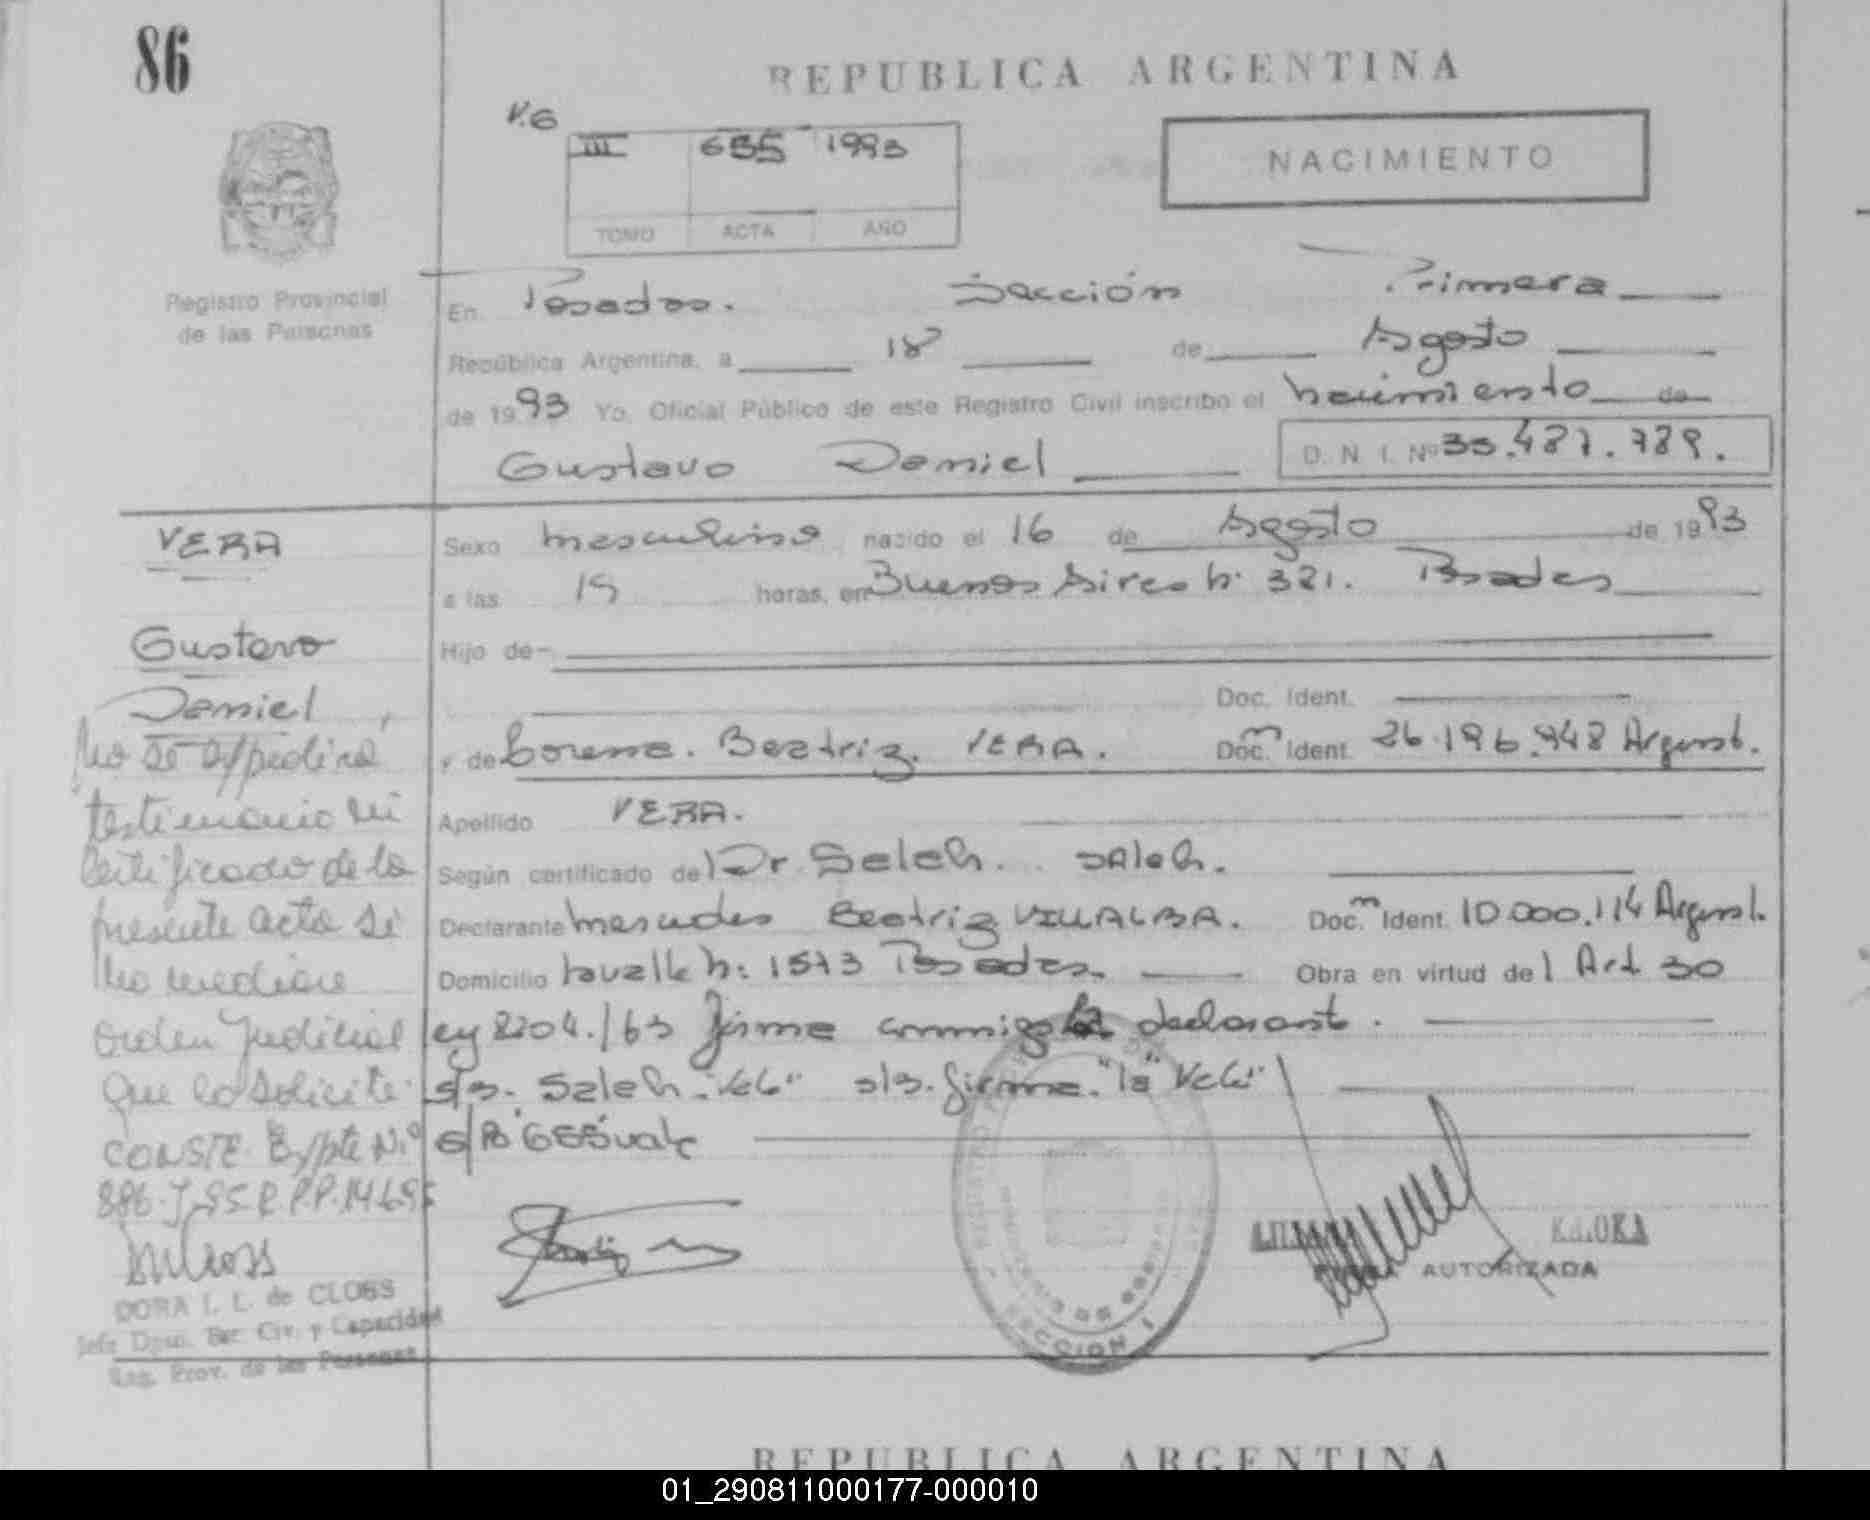 86
REPUBLICA ARGENTINA
V.G
III 655 1993
TOMO ACTA AÑO
NACIMIENTO
Registro Provincial
de las Personas
En Posadas. Sección Primera
República Argentina, a 18 de Agosto
de 1993 Yo, Oficial Público de este Registro Civil inscribo el nacimiento de
Gustavo Daniel D. N. I. Nº
VERA
Gustavo
Daniel
No se expedirá
testimonio ni
certificado de la
presente acta si
no mediare
orden judicial
que lo solicite.
CONSTE. Expte Nº
886-J-95
DORA I. L. de CLOSS
Jefe Dpto. Est. Civ. y Capacidad
Reg. Prov. de las Personas
Sexo masculino nacido el 16 de Agosto de 1993
a las 19 horas, en Buenos Aires N: 321. Posadas
Hijo de
Doc. Ident.
y de Lorena. Beatriz. VERA. Doc. Ident. 26.196.948 Argent.
Apellido VERA.
Según certificado del Dr. Saleh.. SALEH.
Declarante Mercedes Beatriz VILLALBA. Doc. Ident. 10.000.114 Argent.
Domicilio Lavalle N: 1573 Posadas. Obra en virtud del Art 30
ey 8204/63 firma conmigo la declarante.
s/b. Saleh. s/b. firma. "la" Vale"
S/B 655 vale
AUTORIZADA
SECCION 1
REPUBLICA ARGENTINA
01_290811000177-000010